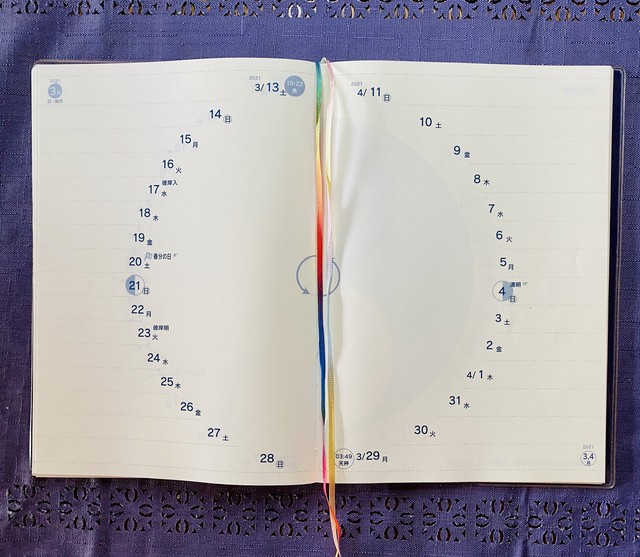 2021
3月
2021
3/13土
19:23
魚
14日
15月
16火
17水 彼岸入
18木
19金
20土 春分の日
21日
22月
23火 彼岸明
24水
25木
26金
27土
28日
2021
4/11日
10土
9金
8木
7水
6火
5月
4日 清明
3土
2金
4/1木
31水
30火
03:49
天秤
3/29月
2021
3,4
月